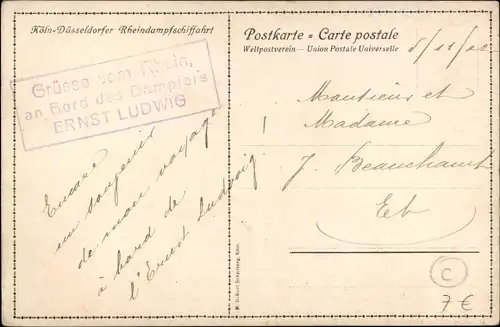 Köln-Düsseldorfer Rheindampfschiffahrt
Grüsse vom Rhein,
an Bord des Dampfers
ERNST LUDWIG
Encore
un souvenir
de mon voyage
à bord de
l'Ernest Ludwig!
Postkarte = Carte postale
Weltpostverein — Union Postale Universelle
5/11/12
Monsieur et
Madame
J. Beauchamt
Et
C
7 €